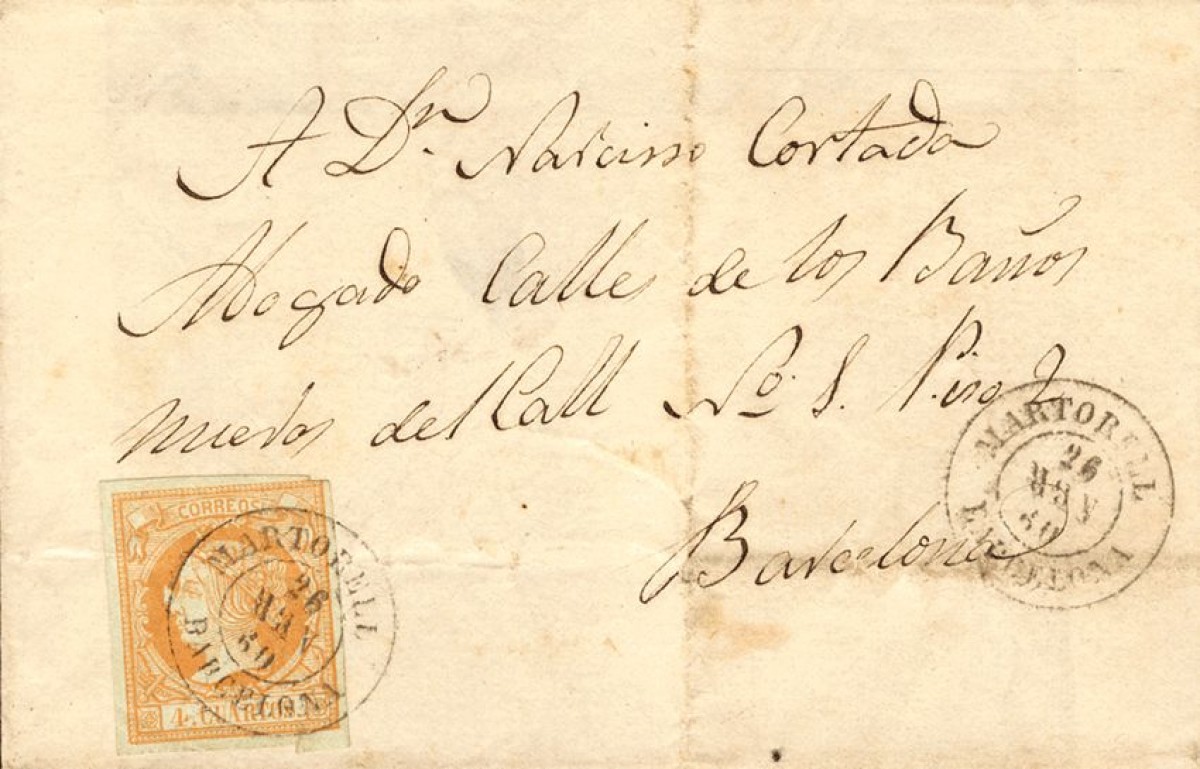 A Dn. Narciso Cortada
Abogado Calle de los Baños
nuevos del Call No. 8. Piso 2
Barcelona
MARTORELL
26
MAY
60
BARCELONA
CORREOS
MARTORELL
26
MAY
60
BARCELONA
4. CUARTOS